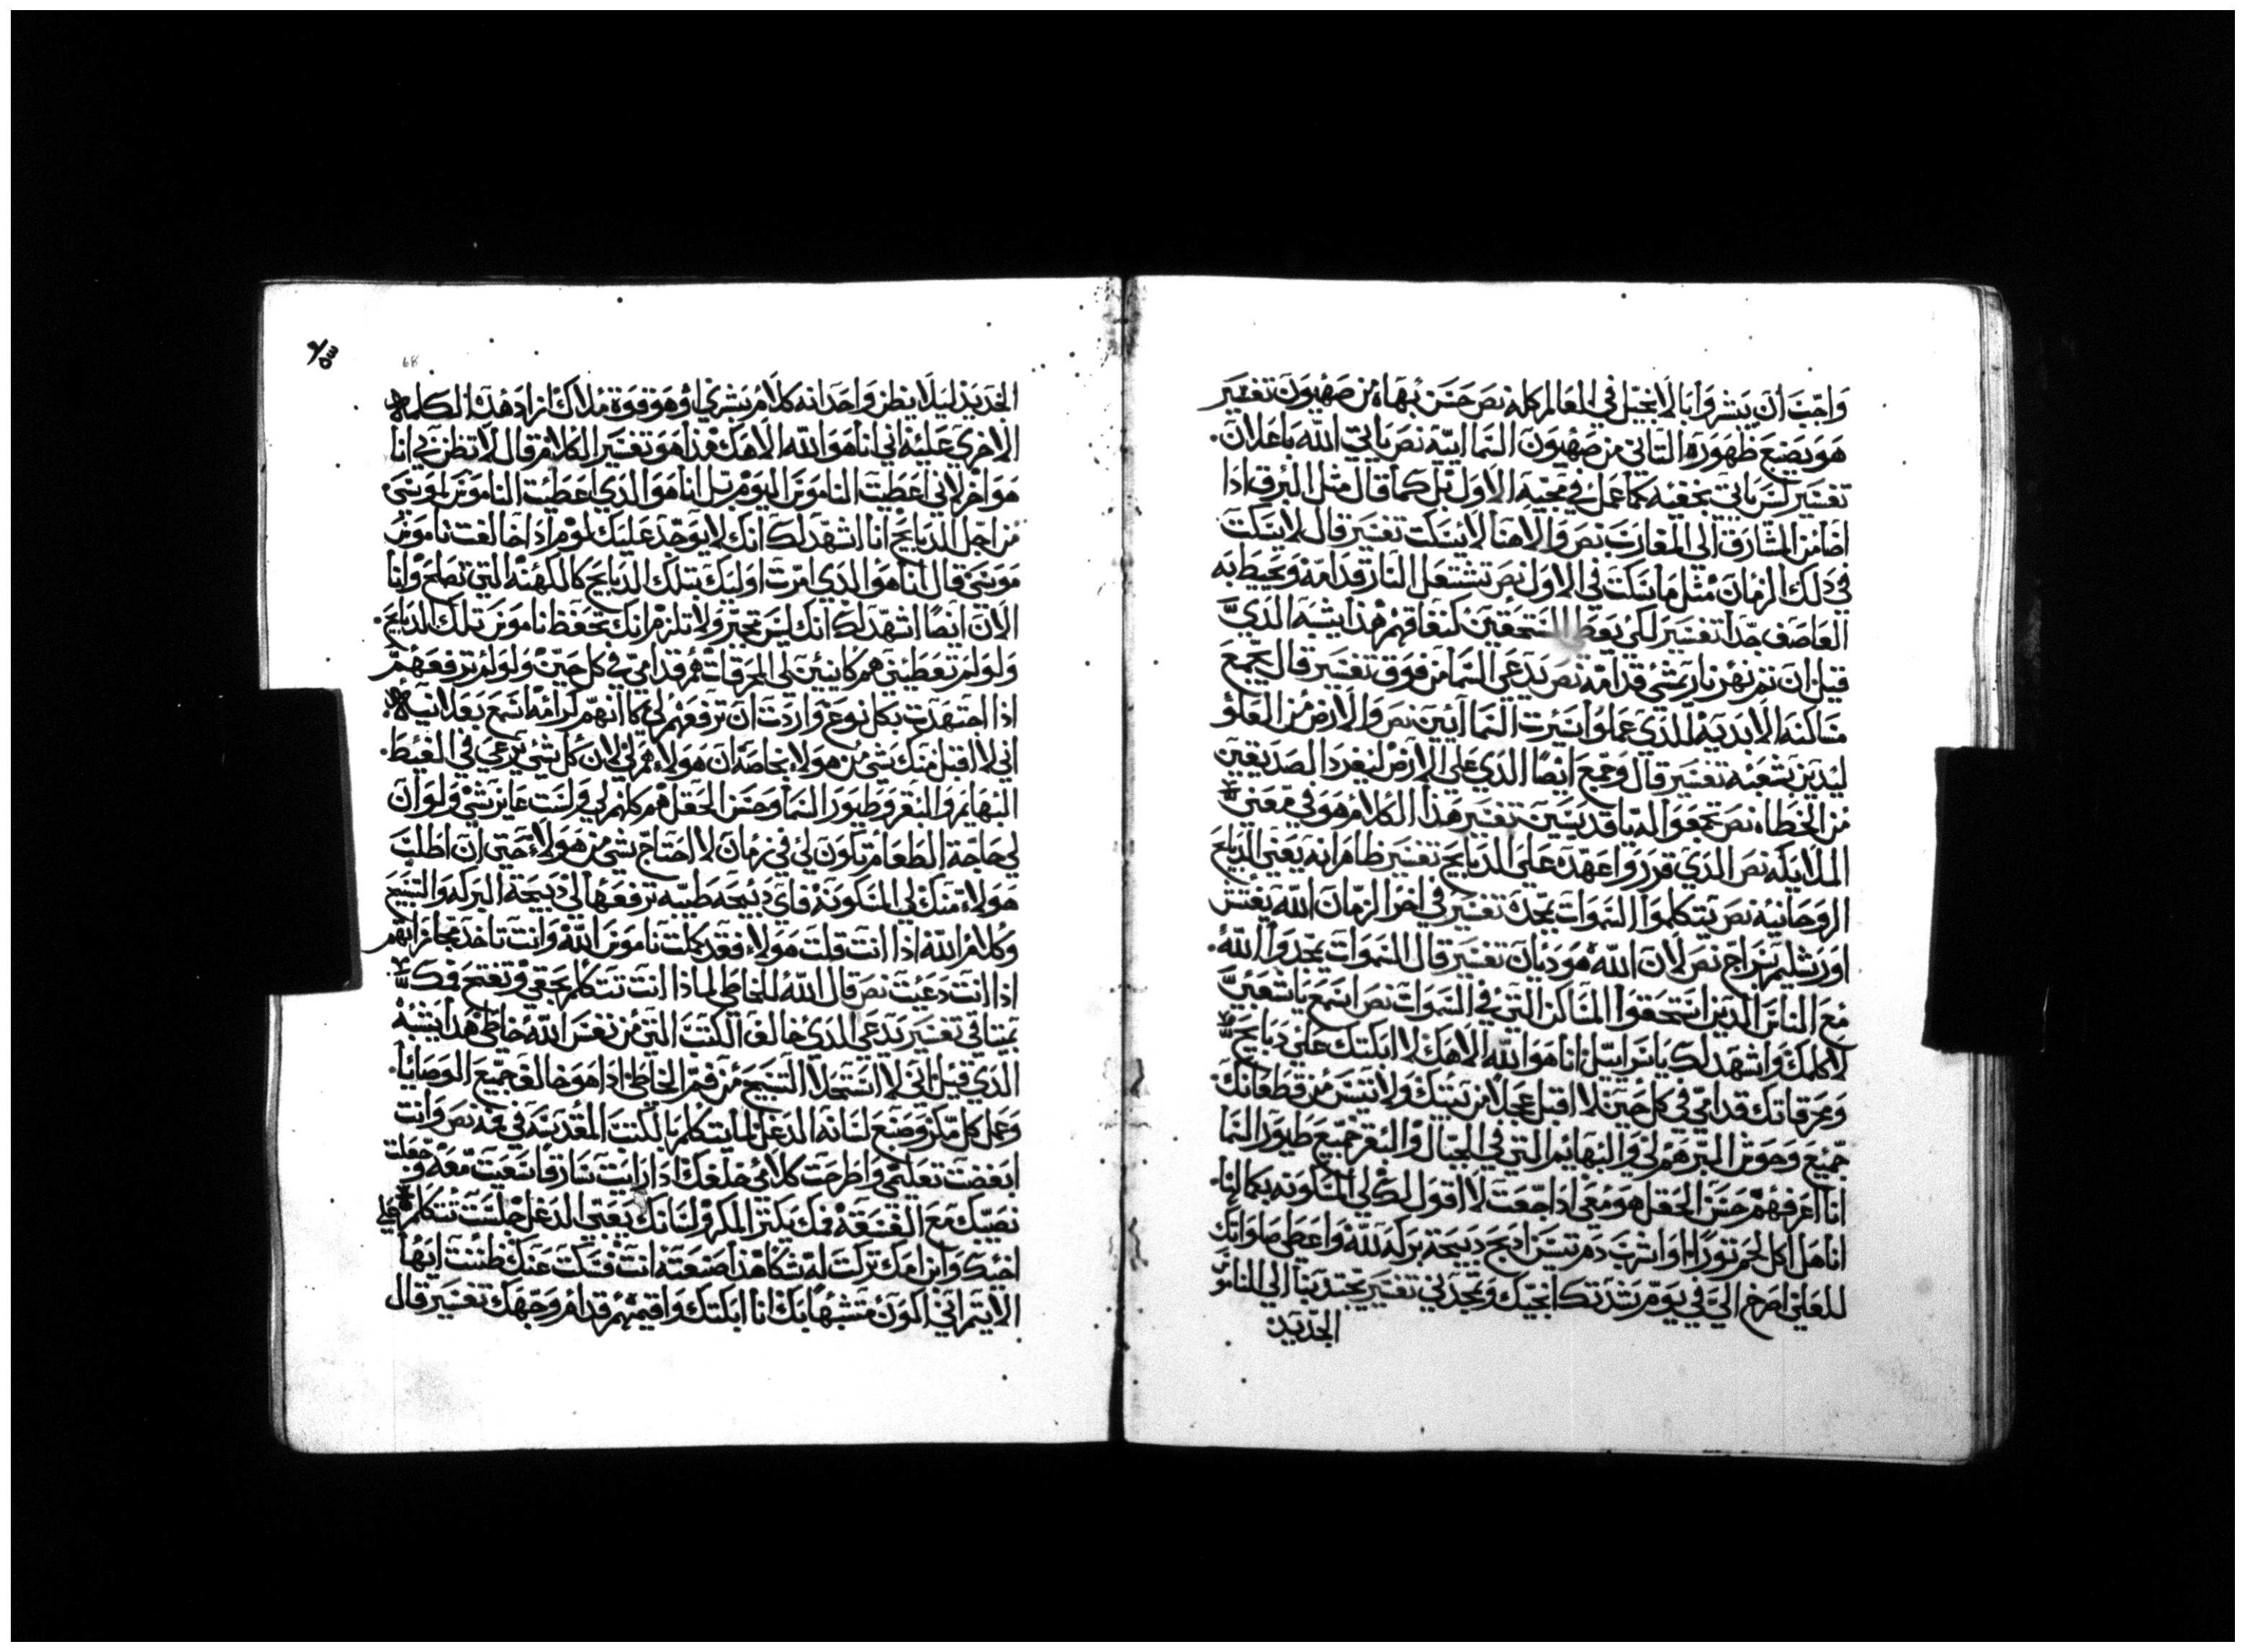 واجب أن يبشروا بالانجيل في العالم كله نص حسن بهاه من صهيون تفسير
هو يضع ظهوره الثاني من صهيون السماائية نص ياتي الله باعلان.
تفسير ليس ياتي بخفية كما عمل في مجيه الاول بل كما قال مثل البرق اذا
اضا من المشارق الي المغارب نص والاهنا لا يسكت تفسير قال لا يسكت
في ذلك الزمان مثل ما سكت في الاول نص تشتعل النار قدامه ويحيط به
العاصف جدا تفسير لكي المستحقين كنفاقهم هذا يشبه الذي
قيل ان ثم نهر نار يمشي قدامه نص يدعي السما من فوق تفسير قال يجمع
مساكنه الابدية الذي عملوا سيرت السماايين نص والارض من العلو
ليدين شعبه تفسير قال وجمع ايضا الذي علي الارض ليفرد الصديقين
من الخطاه نص تجمعوا اليه ياقديسين تفسير هذا الكلام هو في معني
الملايكه نص الذي قرروا عهده علي الدبايح تفسير ظاهر انه يعني الدبايح
الروحانيه نص يتكلموا السموات بمجده تفسير في اخر الزمان الله يفتش
اورشليم بسراج نص لان الله هو ديان تفسير قال السموات يمجدوا الله.
مع الناس الذين استحقوا المساكن التي في السموات نص اسمع ياشعبي
لاكلمك واشهد لك ياسراييل انا هو الله الاهك لا ابكتك علي دبايحك
ومحرقاتك قدامي في كل حين لا اقبل عجلا من بيتك ولا تيس من قطعانك
جميع وحوش البر هم لي والبهايم التي في الجبال والبقر جميع طيور السما
انا اعرفهم حسن الحقل هو معي اذا جعت لا اقول لك لي المسكونه بكمالها.
انا هل اكل لحم تورا او اشرب دم تيس ادبح دبيحة بركه لله واعطي صلواتك
للعلي اصرخ الي في يوم شدتك انجيك وتمجدني تفسير يجتدبنا الي الناموس
الجديد
68
الجديد ليلا يظن واحد انه كلام بشري او هو قوة ملاك زاد هذه الكلمة
الاخري عليه اني انا هو الله الاهك هذا هو تفسير الكلام قال لا تظن بي انا
هو اخر لاني اعطيت الناموس اليوم بل انا هو الذي اعطيت الناموس لموسي.
من اجل الدبايح انا اشهد لك انك لا يوجد عليك لوم اذا خالفت ناموس
موسي قال انا هو الذي امرت اوليك بتلك الدبايح كالكهنه التي تصلح وانا
الان ايضا اشهد لك انك ليس تجبر ولا تلزم انك تحفظ ناموس تلك الدبايح.
ولو لم تعطيني هم كاينين لي المحرقات هم قدامي في كل حين ولو لم ترفعهم
اذا اجتهدت بكل نوع واردت ان ترفعهم لي كاانهم كرامه اسمع بعلانية
اني لا اقبل منك شي من هولاء بخاصه ان هولاء هم لي لان كل شي يرعي في الغيط.
البهايم والبقر وطيور السما وحسن الحقل هم كلهم لي ولست عايز شي ولو ان
لي حاجة الطعام تكون لي في زمان لا احتاج شي من هولاء حتي ان اطلب
هولاء منك لي المسكونة فاي دبيحه طيبه ترفعها لي دبيحة البركه والتسبيح
وكلام الله اذا انت قلت هولاء فقد كملت ناموس الله وانت تاخد مجازاتهم
اذا انت دعيت نص قال الله للخاطي لماذا انت تتكلم بحقي وتفتح فمك
بميتاقي تفسير يدعي الذي خالف الكتب التي من نفس الله خاطي هذا يشبه
الذي قيل اني لا استحلا التسبيح من فم الخاطي اذا هو خالف جميع الوصايا.
وعمل كل مكر وصنع لسانه الدغل لما يتكلم بالكتب المقدسه في فمه نص وانت
ابغضت تعليمي واطرحت كلامي خلفك اذا رايت سارقا سعيت معه وجعلت
نصيبك مع الفسقة فمك يكتر المكر ولسانك يعني الدغل جلست تتكلم علي
اخيك وابن امك تركت له شكا هذا صنعته انت فسكت عنك ظننت ايها
الايتم اني اكون متشبها بك انا ابكتك واقيمهم قدام وجهك تفسير قال